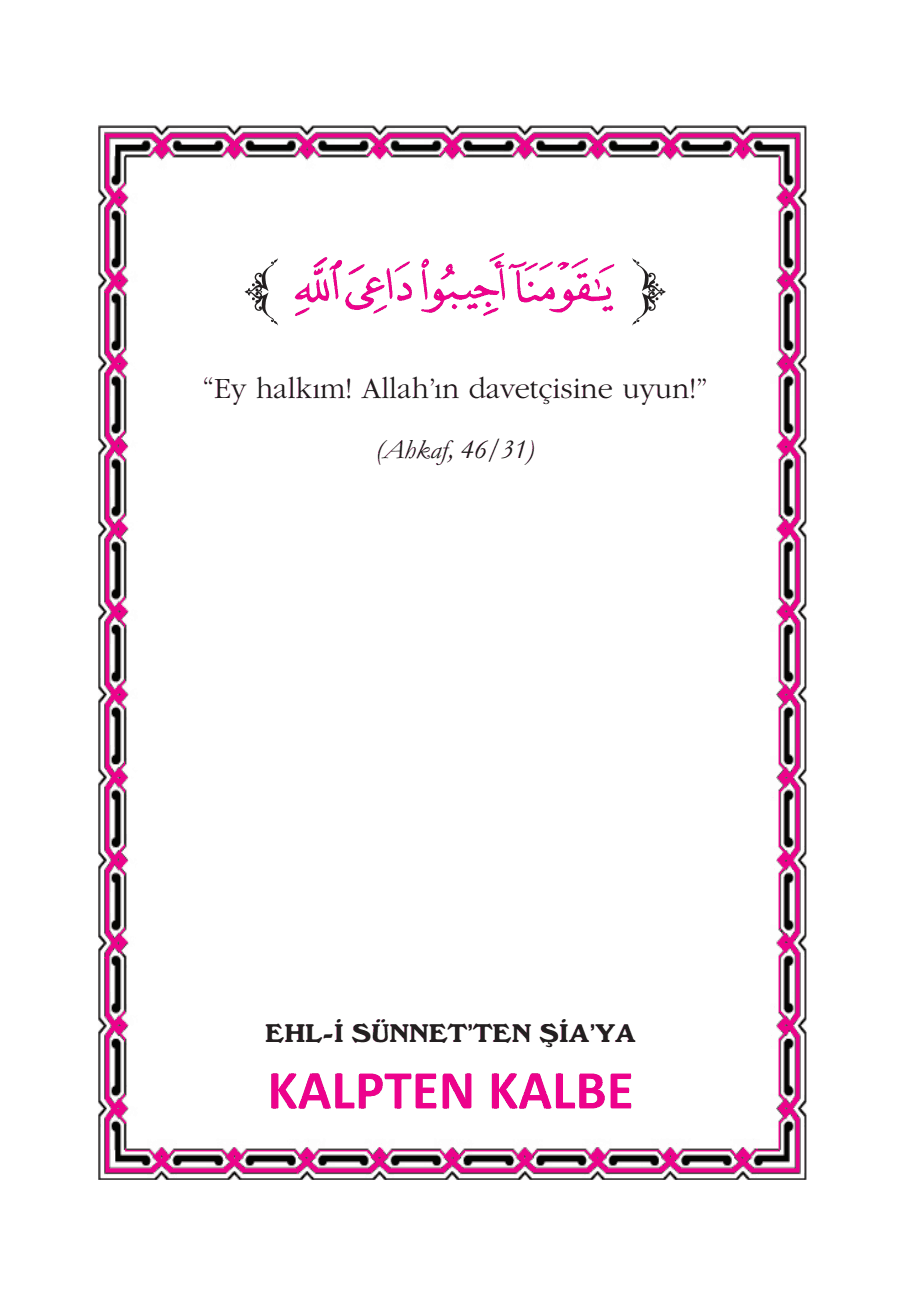 يَٰقَوْمَنَآ أَجِيبُوا۟ دَاعِىَ ٱللَّهِ
“Ey halkım! Allah’ın davetçisine uyun!”
(Ahkaf, 46/31)
EHL-İ SÜNNET’TEN ŞİA’YA
KALPTEN KALBE